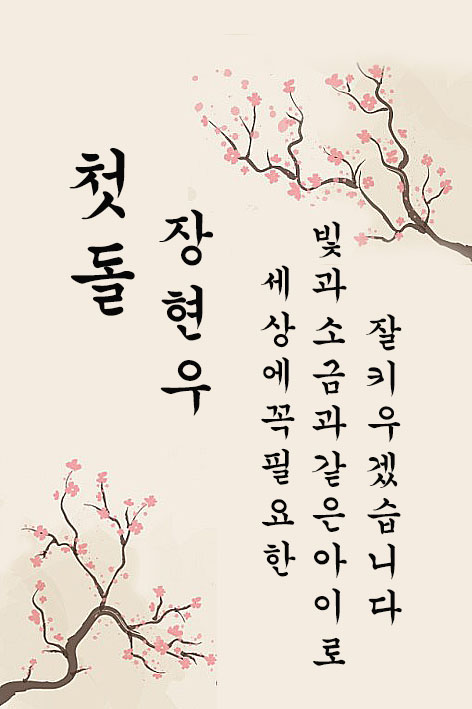 첫돌
장현우
세상에꼭필요한
빛과소금과같은아이로
잘키우겠습니다